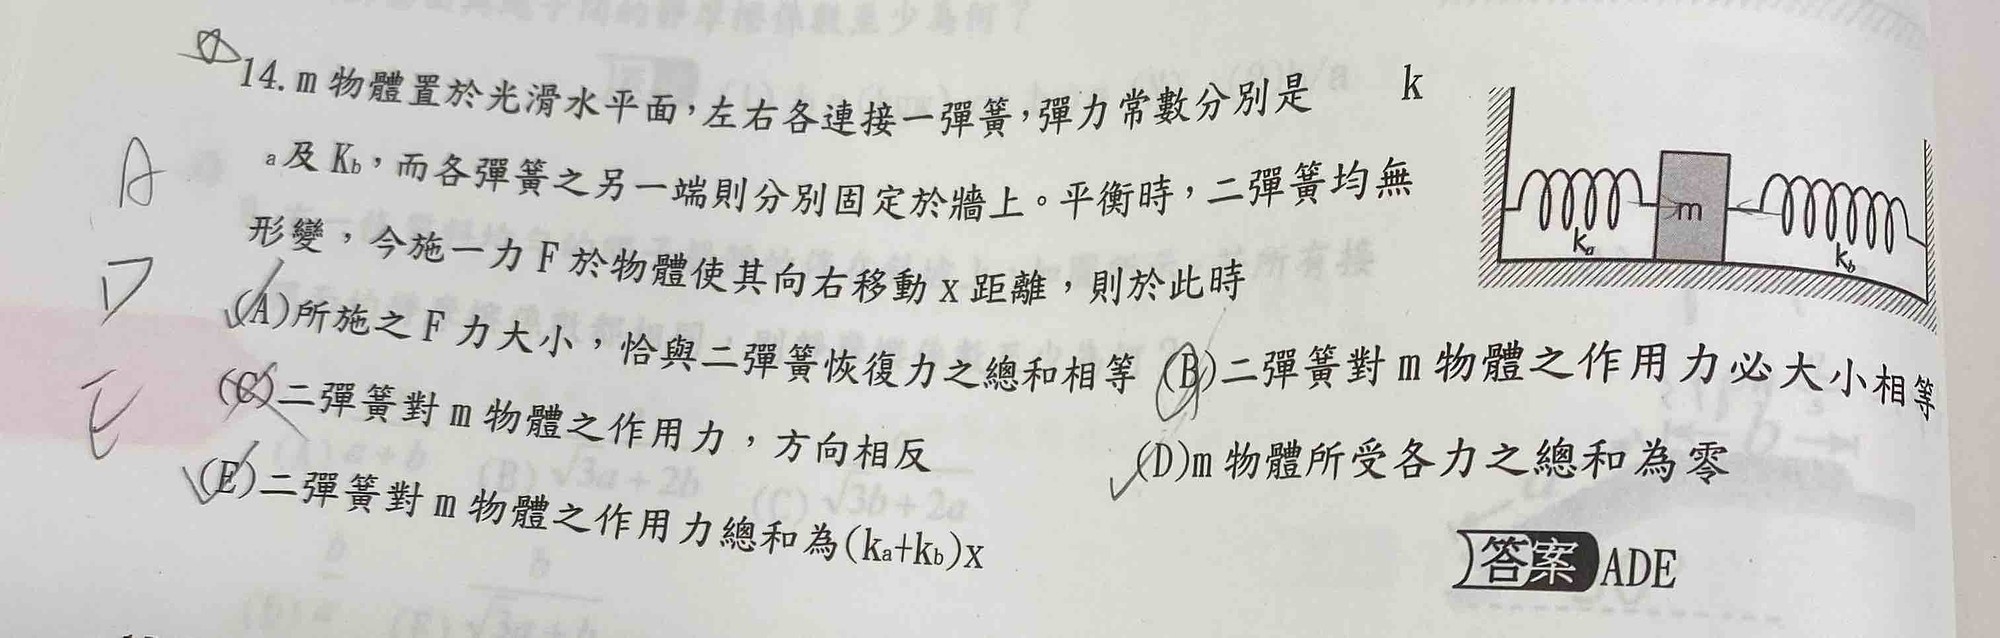 14. m 物體置於光滑水平面，左右各連接一彈簧，彈力常數分別是 k
a及 Kb，而各彈簧之另一端則分別固定於牆上。平衡時，二彈簧均無
形變，今施一力 F 於物體使其向右移動 x 距離，則於此時
(A)所施之 F 力大小，恰與二彈簧恢復力之總和相等 (B)二彈簧對 m 物體之作用力必大小相等
(C)二彈簧對 m 物體之作用力，方向相反 (D)m 物體所受各力之總和為零
(E)二彈簧對 m 物體之作用力總和為(ka+kb)x
答案 ADE
A
D
E
ka
m
kb